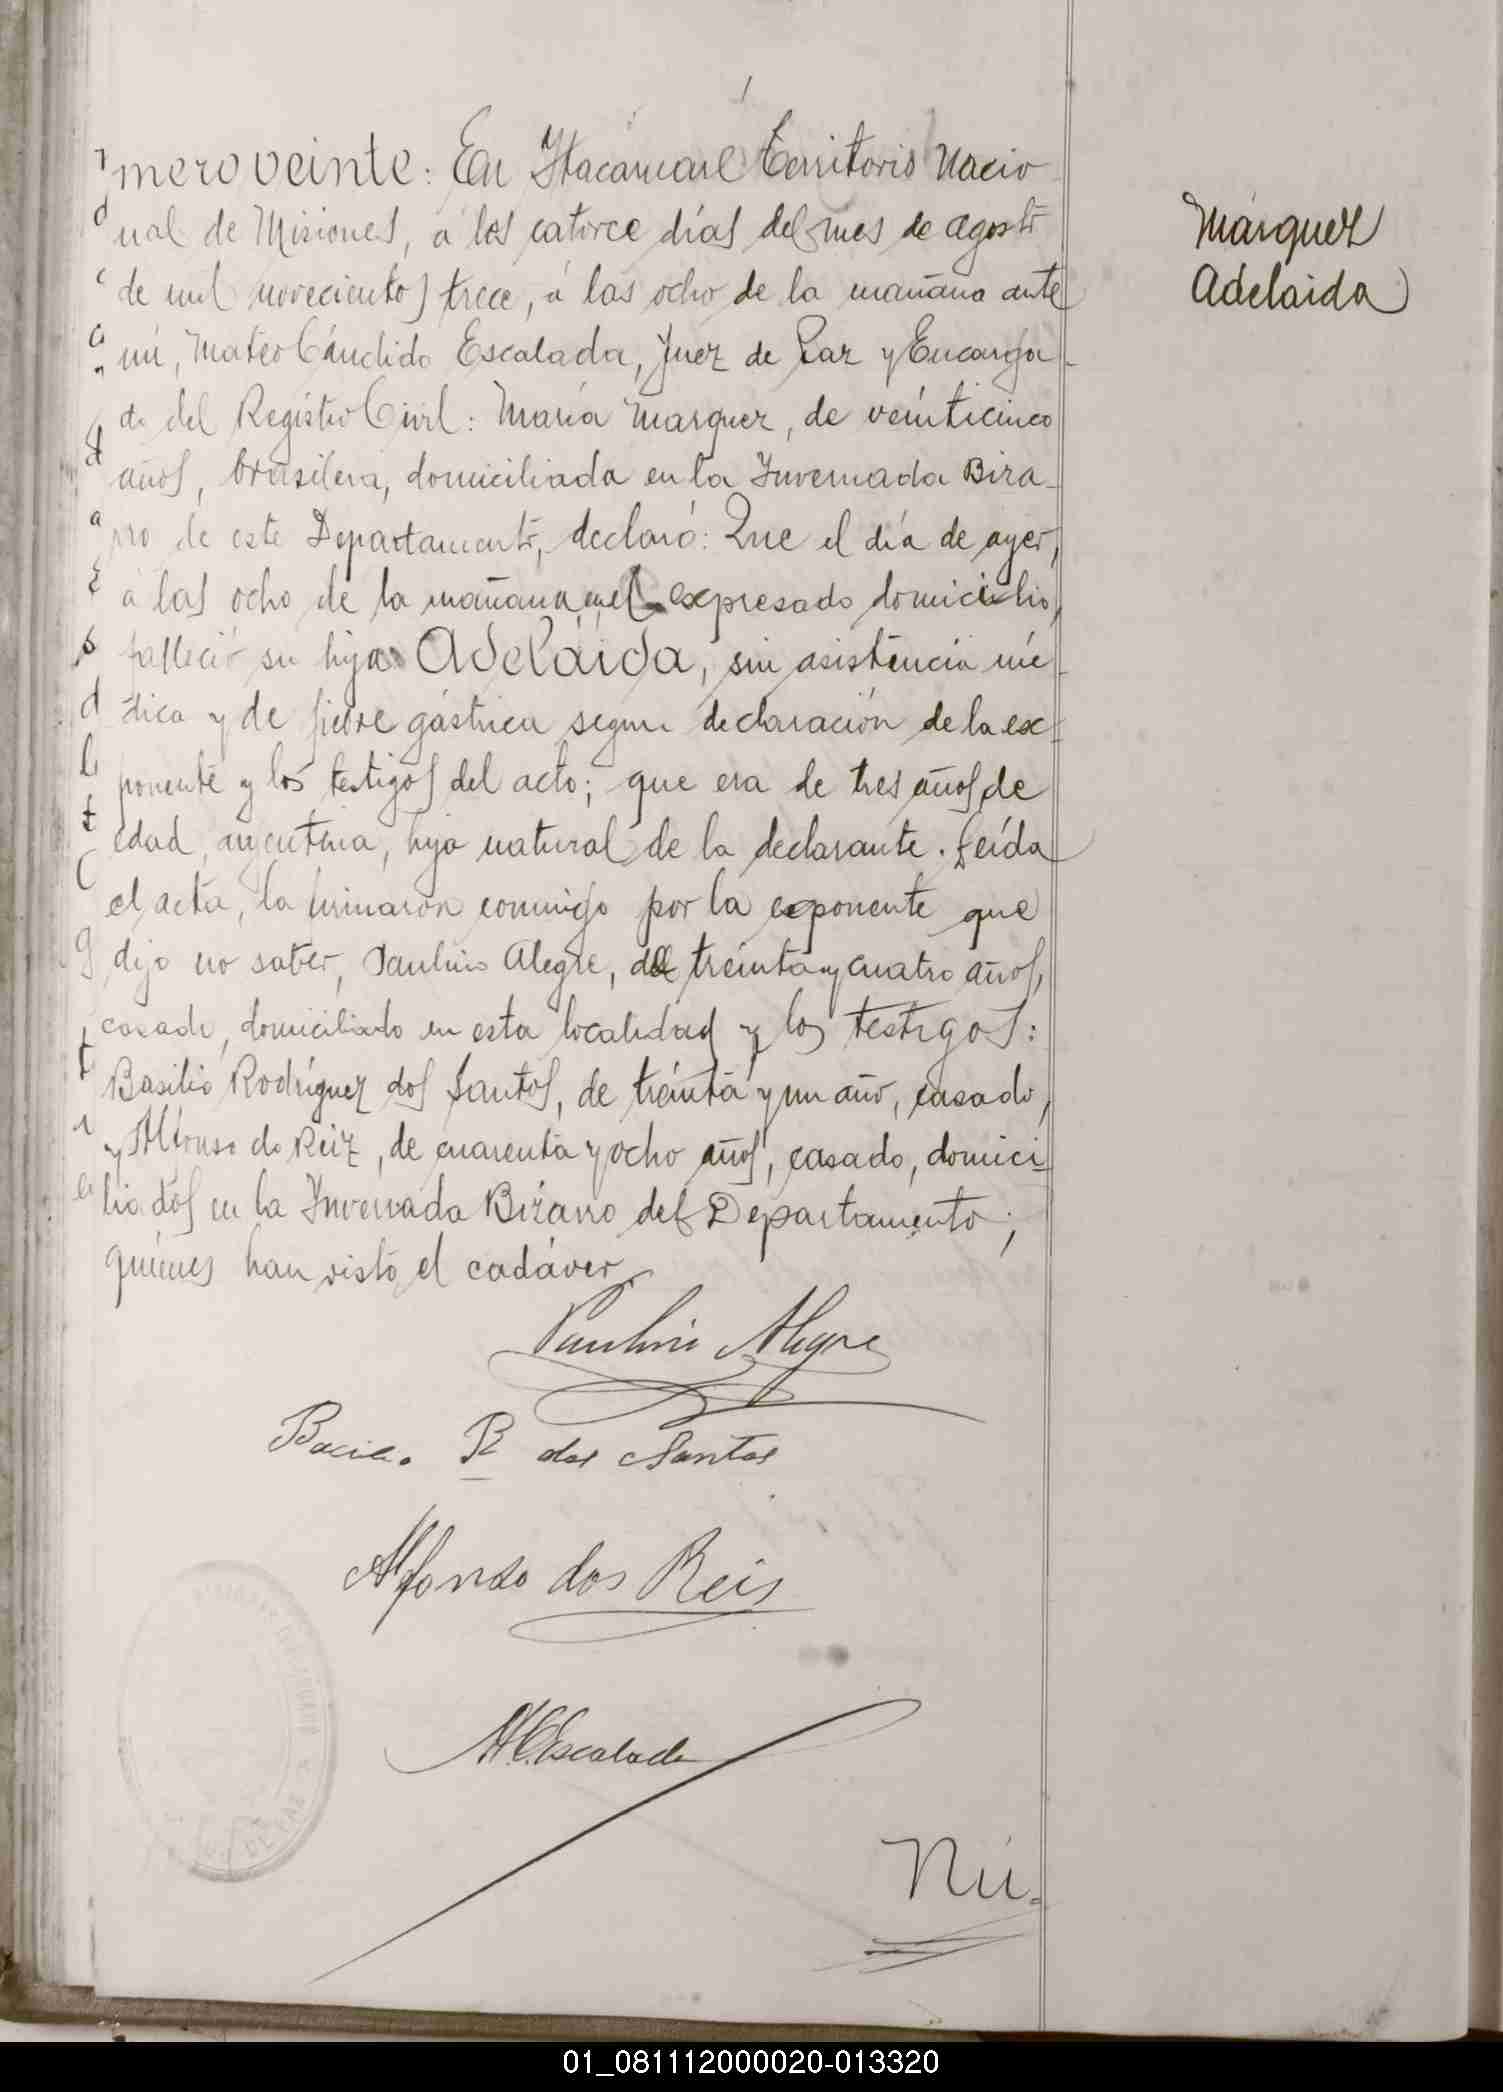 mero veinte: En Itacaruaré Territorio Nacio
nal de Misiones, á los catorce días del mes de agosto
de mil novecientos trece, á las ocho de la mañana ante
mí, Mateo Cándido Escalada, Juez de Paz y Encarga-
do del Registro Civil: María Marquez, de veinticinco
años, brasilera, domiciliada en la Invernada Biza-
rro de este Departamento, declaró: Que el día de ayer,
á las ocho de la mañana en el expresado domicilio,
falleció su hija Adelaida, sin asistencia mé-
dica y de fiebre gástrica segun declaración de la ex-
ponente y los testigos del acto; que era de tres años de
edad, argentina, hija natural de la declarante. Leída
el acta, la firmaron conmigo por la exponente que
dijo no saber, Paulino Alegre, de treinta y cuatro años,
casado, domiciliado en esta localidad y los testigos:
Basilio Rodríguez dos Santos, de treinta y un año, casado,
y Alfonso do Reiz, de cuarenta y ocho años, casado, domici-
liados en la Invernada Bizarro del Departamento;
quienes han visto el cadáver.
Paulino Alegre
Bacilio R dos Santos
Alfonso dos Reis
M.C.Escalada
Nú-
Márquez
Adelaida
01_081112000020-013320